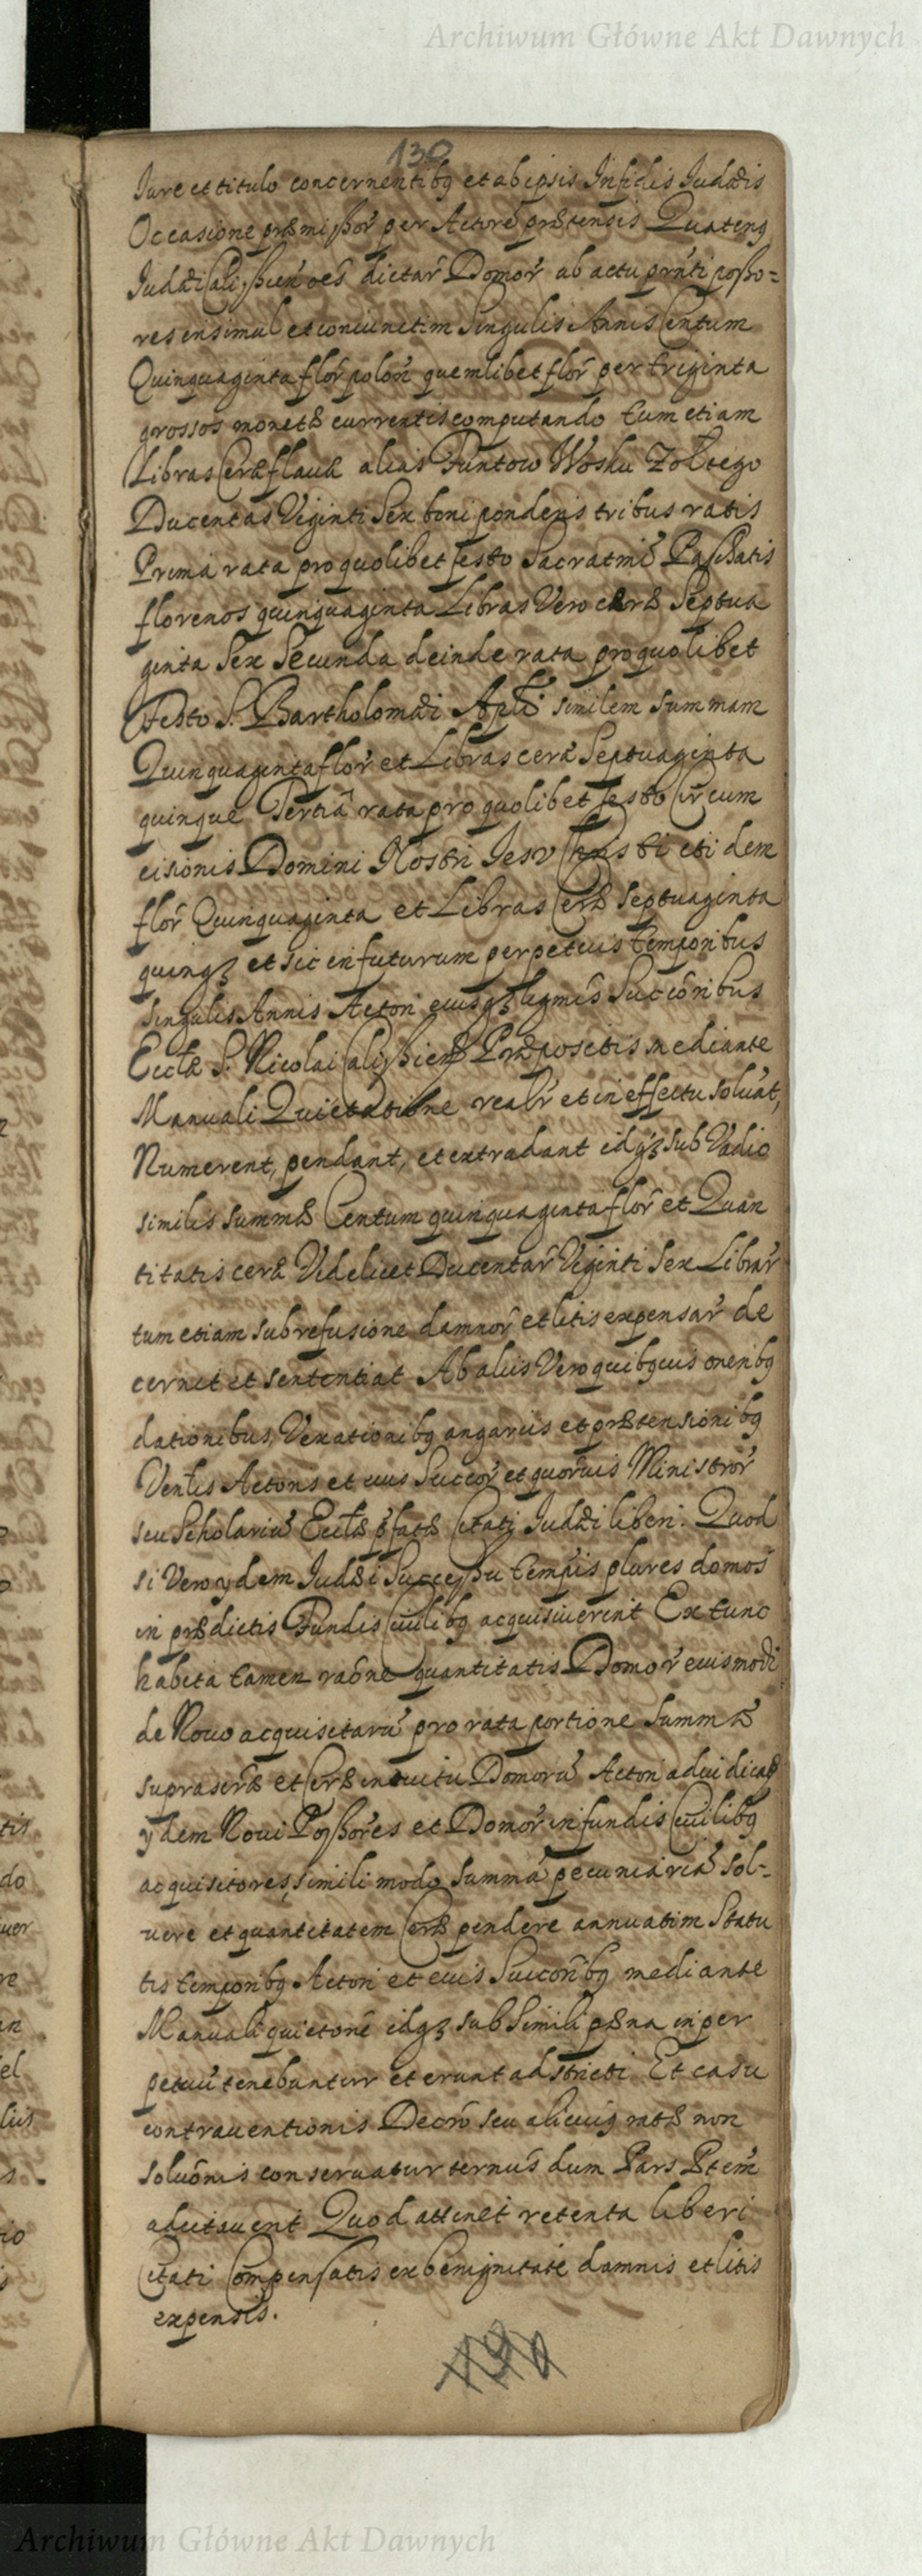 Archiwum Główne Akt Dawnych
130
Iure et titulo concernentibq et ab ipsis Infidis Iudæis
Occasione præmissor̃ per Actorẽ prætensis Quatenq
Iudæi Calissien̄ oēs dictar̃ Domor̃ ab actu prñti posso=
res insimul et coniunctim Singulis Annis Centum
Quinquaginta flor̃ polon̄ quemlibet flor̃ per triginta
grossos monetæ currentis computando tum etiam
Libras Ceræ flavæ alias Funtow Wosku Zołtego
Ducentas Viginti Sex boni ponderis tribus ratis
Prima rata pro quolibet festo Sacratmĩ Paschatis
florenos quinquaginta Libras Vero ceræ Septua
ginta Sex Secunda deinde rata pro quolibet
Festo S. Bartholomæi Apli similem summam
Quinquaginta flor̃ et Libras ceræ Septuaginta
quinque Tertiâ rata pro quolibet festo Circum
cisionis Domini Nostri Iesv Chrysti itidem
flor̃ Quinquaginta et Libras Ceræ septuaginta
quinqʒ et sic in futurum perpetuis temporibus
singulis Annis Actori eiusqʒ legmis̃ Succoribus
Ecclæ S. Nicolai Calissien̄ Præpositis mediante
Manuali Quietatione realr̃ et in effectu solvãt,
Numerent, pendant, et extradant idqʒ sub Vadio
similis summæ Centum quinquaginta flor̃ et Quan
titatis ceræ Videlicet Ducentar̃ Viginti Sex Librar̃
tum etiam sub refusione damnor̃ et litis expensar̃ de
cernit et sententiat Ab aliis Vero quibqvis oneribq
dationibus, Vexationibq angariis et prætensionibq
Venlis Actoris et eius Succor̃ et quorvis Ministror̃
seu Scholariũ Ecclæ pfatæ Citati Iudæi liberi. Quod
si Vero ydem Iudæi Successu tempis plures domos
in prædictis Fundis Civilibq acquisiverint Ex tunc
habita tamen raõne quantitatis Domor̃ eiusmodi
de Novo acquisitarũ pro rata portione Summæ
suprascræ et Ceræ intuitu Domorũ Actori adiudicatæ
ydem Novi Possores et Domor̃ in fundis Civilibq
acquisitores, simili modo Summã pecuniariã sol-
vere et quantitatem Ceræ pendere annuatim Statu
tis temporibq Actori et eius Succoribq mediante
Manuali quietone idqʒ sub Simili pæna in per
petuũ tenebuntur et erunt adstricti Et casu
contraventionis Decrõ seu alicuiq ratæ non
Solvõnis conservatur ternus̃ dum Pars Ptem̃
adcitaverit Quod attinet retenta liberi
Citati Compensatis ex benignitate damnis et litis
expensis.
Archiwum Główne Akt Dawnych